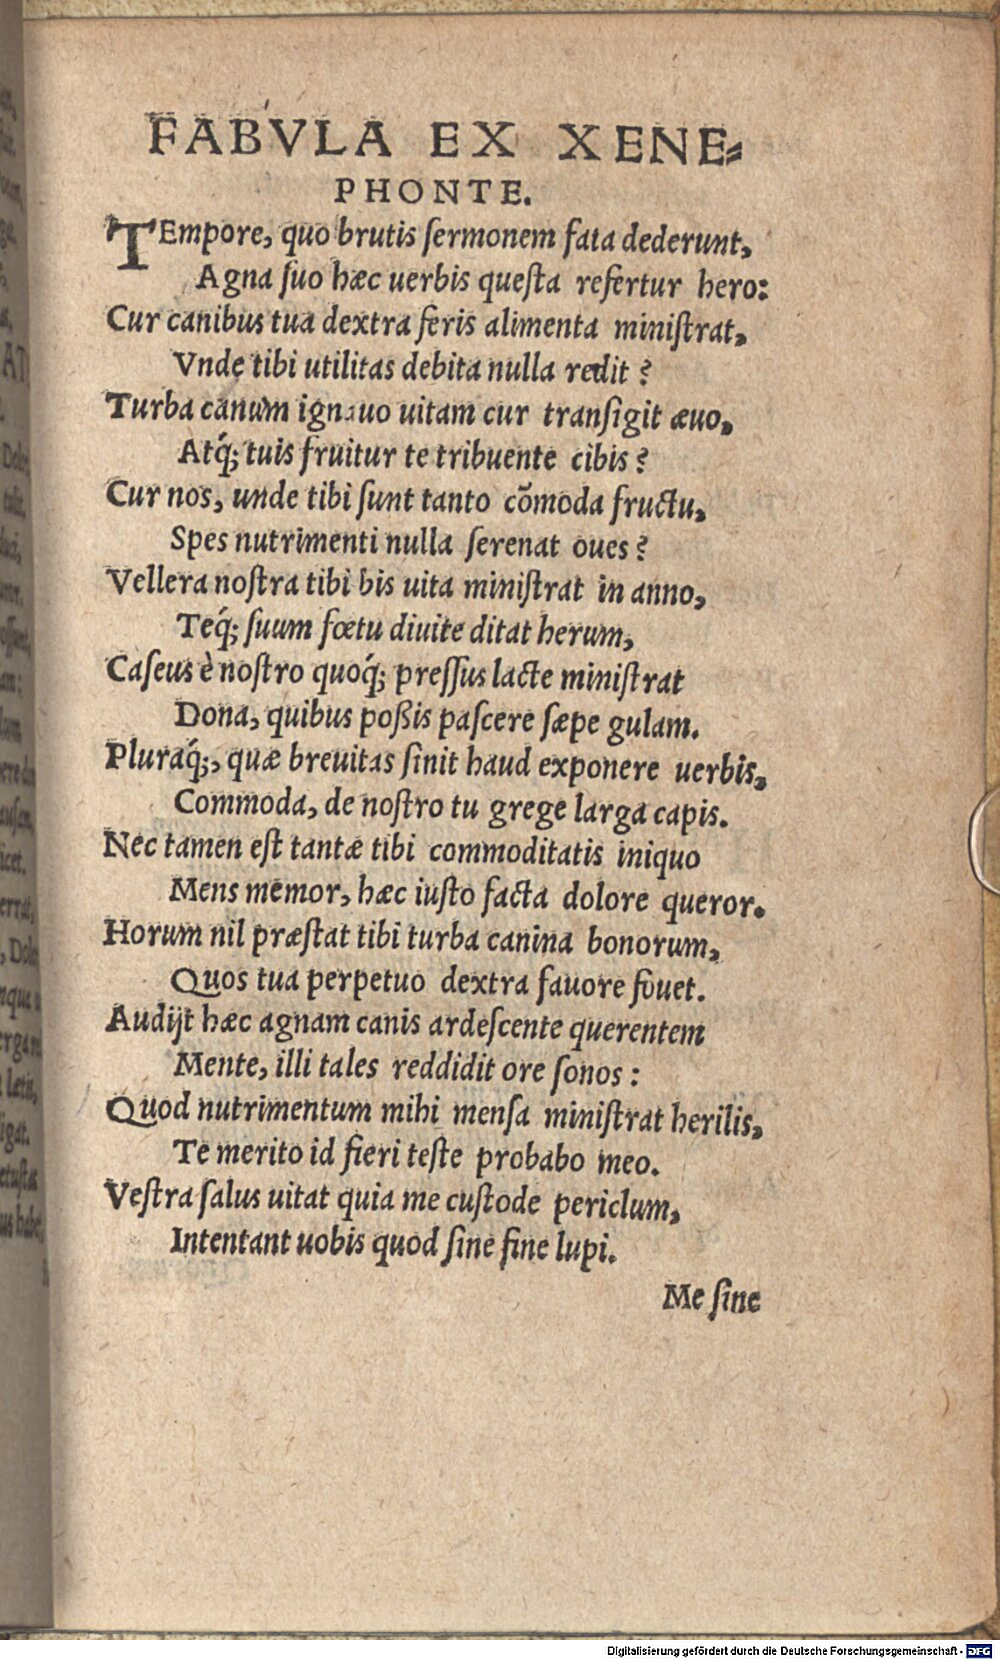 FABVLA EX XENE⸗
PHONTE.
TEmpore, quo brutis ſermonem fata dederunt,
Agna ſuo hæc uerbis queſta refertur hero:
Cur canibus tua dextra feris alimenta miniſtrat,
Vnde tibi utilitas debita nulla redit?
Turba canum ignauo uitam cur tranſigit æuo,
Atq́; tuis fruitur te tribuente cibis?
Cur nos, unde tibi ſunt tanto cõmoda fructu,
Spes nutrimenti nulla ſerenat oues?
Vellera noſtra tibi bis uita miniſtrat in anno,
Teq́; ſuum fœtu diuite ditat herum,
Caſeus è noſtro quoq́; preſſus lacte miniſtrat
Dona, quibus poßis paſcere ſæpe gulam.
Pluraq́;, quæ breuitas ſinit haud exponere uerbis,
Commoda, de noſtro tu grege larga capis.
Nec tamen eſt tantæ tibi commoditatis iniquo
Mens memor, hæc iuſto facta dolore queror.
Horum nil præſtat tibi turba canina bonorum,
Quos tua perpetuo dextra fauore fouet.
Audijt hæc agnam canis ardeſcente querentem
Mente, illi tales reddidit ore ſonos:
Quod nutrimentum mihi menſa miniſtrat herilis,
Te merito id fieri teſte probabo meo.
Veſtra ſalus uitat quia me cuſtode periclum,
Intentant uobis quod ſine fine lupi.
Me ſine
Digitalisierung gefördert durch die Deutsche Forschungsgemeinschaft - DFG